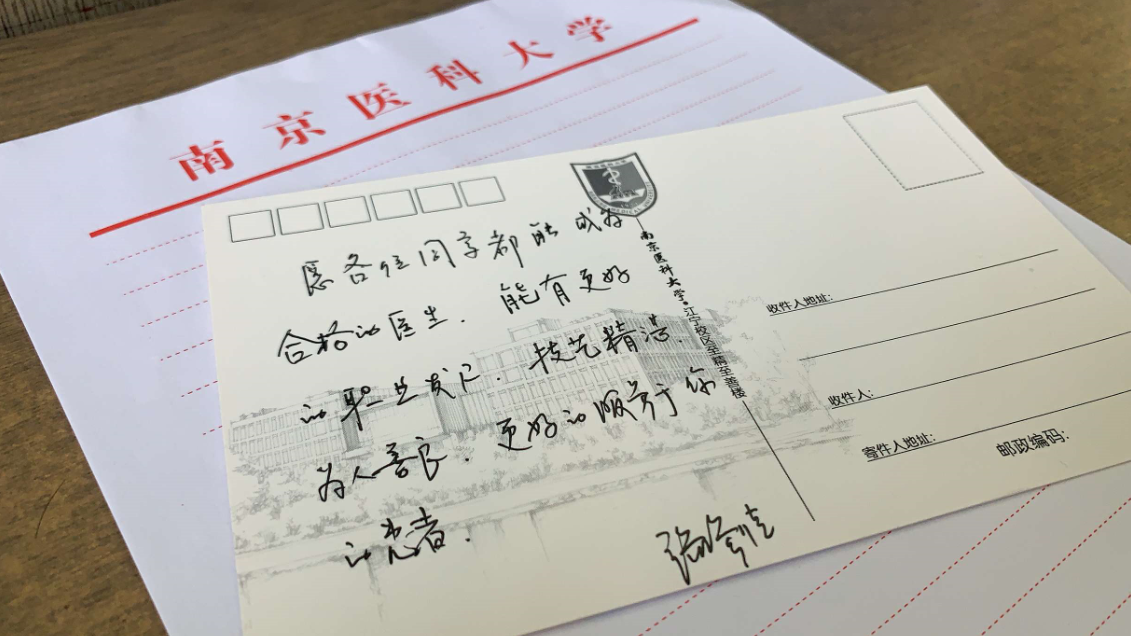 南京医科大学
愿各位同学都能成为
合格的医生.能有更好
的职业发展.技艺精湛.
为人善良.更好的服务于你
的患者.
南京医科大学·江宁校区至精至善楼
收件人地址:
收件人:
寄件人地址:
邮政编码: